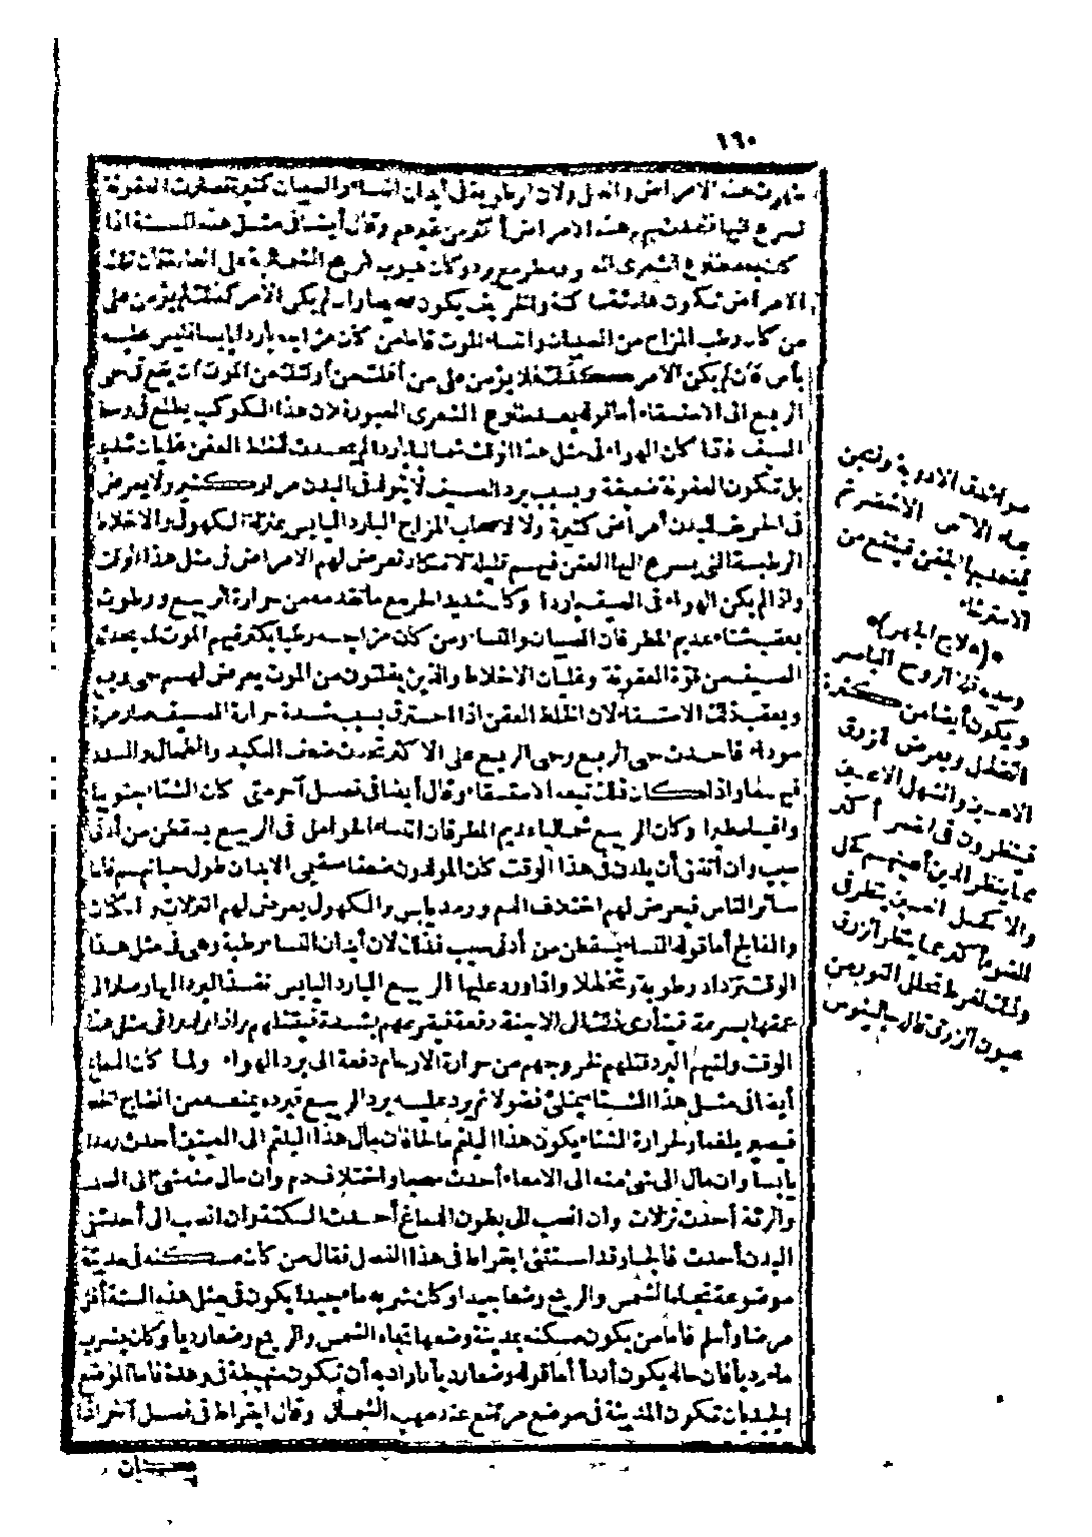 ١٦٠
هذه الامراض ولان الرطوبة فى أبدان النساء والصبيان كثيرة صارت العفونة
تسرع اليها فتحدث بهم هذه الامراض أكثر من غيرهم وقال أيضا فى مثل هذه السنة اذا
كان بعد طلوع الشعرى مطر مع برد وكان هبوب الريح الشمالية على العادة فان هذه
الامراض تكون ساكنة والخريف يكون وان لم يكن الأمر كذلك لم يؤمن على
من كان رطب المزاج من الصبيان والنساء الموت فاما من كان مزاجه باردا يابسا فليس عليه
بأس فان لم يكن الامر كذلك فلا يؤمن على من أفلت من أولئك من الموت أن يقع فى حمى
الربع الى الاستسقاء أما قوله بعد طلوع الشعرى العبور فلان هذا الكوكب يطلع فى وسط
الصيف فاذا كان الهواء فى مثل هذا الوقت شماليا باردا لم يحدث لخلط العفن غليان شديد
بل تكون العفونة ضعيفة وبسبب برد الصيف لا يتولد فى البدن مرار كثير ولا يعرض
فى الخريف للبدن أمراض كثيرة ولا لاصحاب المزاج البارد اليابس بمنزلة الكهول والاخلاط
الرطبة التى يسرع اليها العفن فيهم قليلة لا تكاد تعرض لهم الامراض فى مثل هذا الوقت
واذا لم يكن الهواء فى الصيف باردا وكان شديد الحر مع ما تقدمه من حرارة الربيع ورطوبته
بعقب شتاء عديم المطر فان الصبيان والنساء ومن كان مزاجه رطبا يكثر فيهم الموت لما يحدثه
الصيف من قوة العفونة وغليان الاخلاط والذين يفلتون من الموت يعرض لهم حمى ربع
وبعقب ذلك الاستسقاء لان الخلط العفن اذا احترق بسبب شدة حرارة الصيف صار مرة
سوداء فأحدث حمى الربع وحمى الربع على الاكثر تحدث ضعف الكبد والطحال والسدد
فيهما واذا كان ذلك تبعه الاستسقاء وقال أيضا فى فصل آخر متى كان الشتاء جنوبيا
وافيا مطيرا وكان الربيع شماليا عديم المطر فان النساء الحوامل فى الربيع يسقطن من أدنى
سبب وان اتفق أن يلدن فى هذا الوقت كان المولدون ضعفاء سقيمى الابدان طول حياتهم فاما
سائر الناس فيعرض لهم اختلاف الدم ورمد يابس والكهول يعرض لهم النزلات
والفالج أما قوله النساء يسقطن من أدنى سبب فذلك لان أبدان النساء رطبة وهى فى مثل هذا
الوقت تزداد رطوبة وتخلخلا واذا ورد عليها الربيع البارد اليابس نفذ البرد اليها وصار الى
عمقها بسرعة فيتأدى ذلك الى الاجنة دفعة فيقرعهم بشدة فيقتلهم واذا ولدوا فى مثل هذا
الوقت ولقيهم البرد قتلهم لخروجهم من حرارة الارحام دفعة الى برد الهواء ولما كان الدماغ
أيضا فى مثل هذا الشتاء يمتلئ فضولا ثم يرد عليه برد الربيع فبرده يمنعه من انضاج تلك
فيصير بلغما ولحرارة الشتاء يكون هذا البلغم مالحا فان مال هذا البلغم الى العينين أحدث رمدا
يابسا وان مال الى شئ منه الى الامعاء أحدث واختلاف دم وان مال منه شئ الى الصدر
والرئة أحدث نزلات وان انصب الى بطون الدماغ أحدث السكتة وان انصب الى أحد شقى
البدن أحدث فالجا وقد استثنى ابقراط فى هذا الفصل فقال من كان مسكنه فى مدينة
موضوعة تجاه الشمس والريح وضعا جيدا وكان شربه ماء جيدا يكون فى مثل هذه السنة أقل
مرضا وأسلم فاما من يكون مسكنه بمدينة وضعها تجاه الشمس والريح وضعا رديأ وكان يشرب
ماء رديأ فان حاله يكون أردأ أما قوله وضعا رديأ فاراد به أن تكون منهبطة فى وهدة فاما الموضع
الجيد بان تكون المدينة فى موضع مرتفع عند مهب الشمال وقال ابقراط فى فصل آخر اذا
كان
الادوية وليعجن
بماء الآس الاخضر ثم
العين فينتفع من
الاسترخاء
(علاج الجهر)
وسببه قلة الروح الباصر
ويكون أيضا من كثرة
التحلل ويعرض لازرق
الاعين والشهل الاعين
فينظرون فى أكثر
مما ينظر الذين أعينهم كحل
والاكحل العينين ينظر فى
الضوء أكثر مما ينظر أزرق
وذلك لفرط تحلل النور من
عيون الزرق قال جالينوس